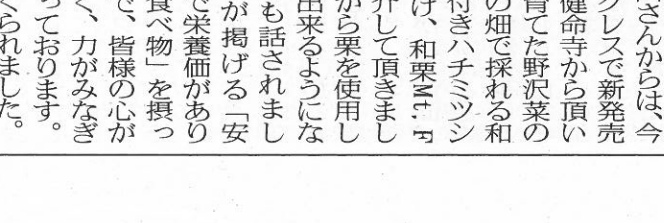 さんからは、今
グレスで新発売
健命寺から頂い
育てた野沢菜の
の畑で採れる和
付きハチミツシ
け、和栗Mt.F
介して頂きまし
から栗を使用し
出来るようにな
も話されまし
が掲げる「安
で栄養価があり
食べ物」を摂っ
で、皆様の心が
く、力がみなぎ
っております。
られました。